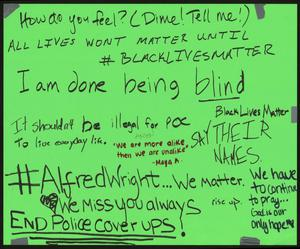 How do you feel? (Dime! Tell me!)
ALL LIVES WONT MATTER UNTIL
#BLACKLIVESMATTER
I am done being blind
Black Lives Matter
It shouldn't be illegal for POC
To live everyday life.
"We are more alike,
then we are unalike"
-Maya A.
SAY THEIR
NAMES.
#AlfredWright... We matter.
We miss you always
rise up.
We have
to continue
to pray...
God is our
only hope
END POLICE COVER UPS!